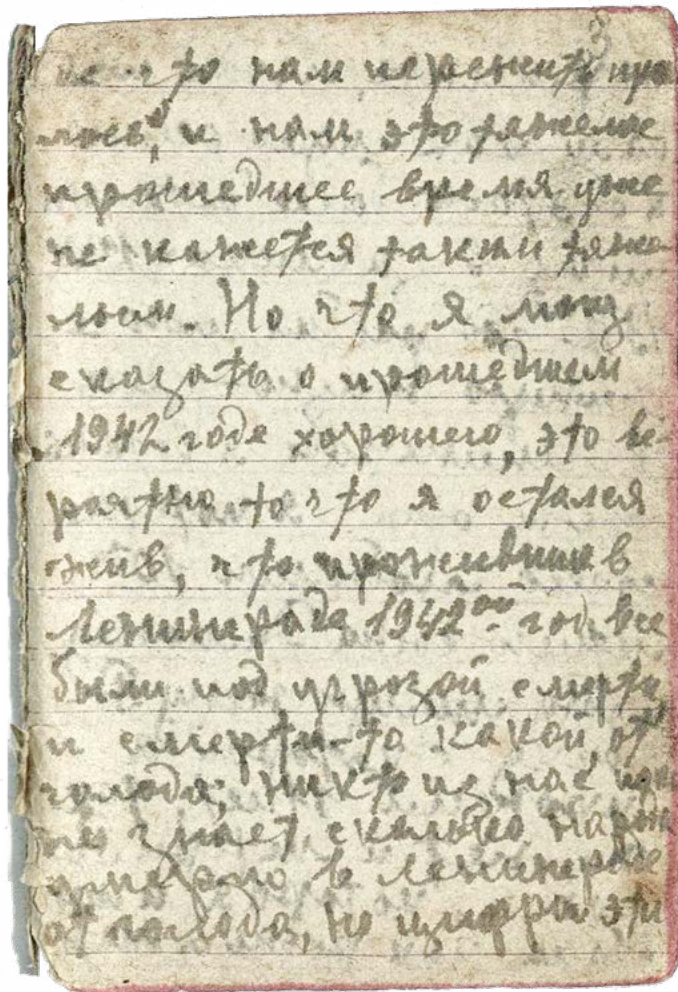 что нам пережить при
лось, и нам это тяжелое
прошедшее время уже
не кажется таким тяже
лым. Но что я могу
сказать о прошедшем
1942 годе хорошего, это ве
роятно то что я остался
жив, что проживши в
Ленинграде 1942ой год все
были под угрозой смерти
и смерти-то какой, от
голода; никто из нас
не знает, сколько народа
умерло в Ленинграде
от голода, но цифры эти